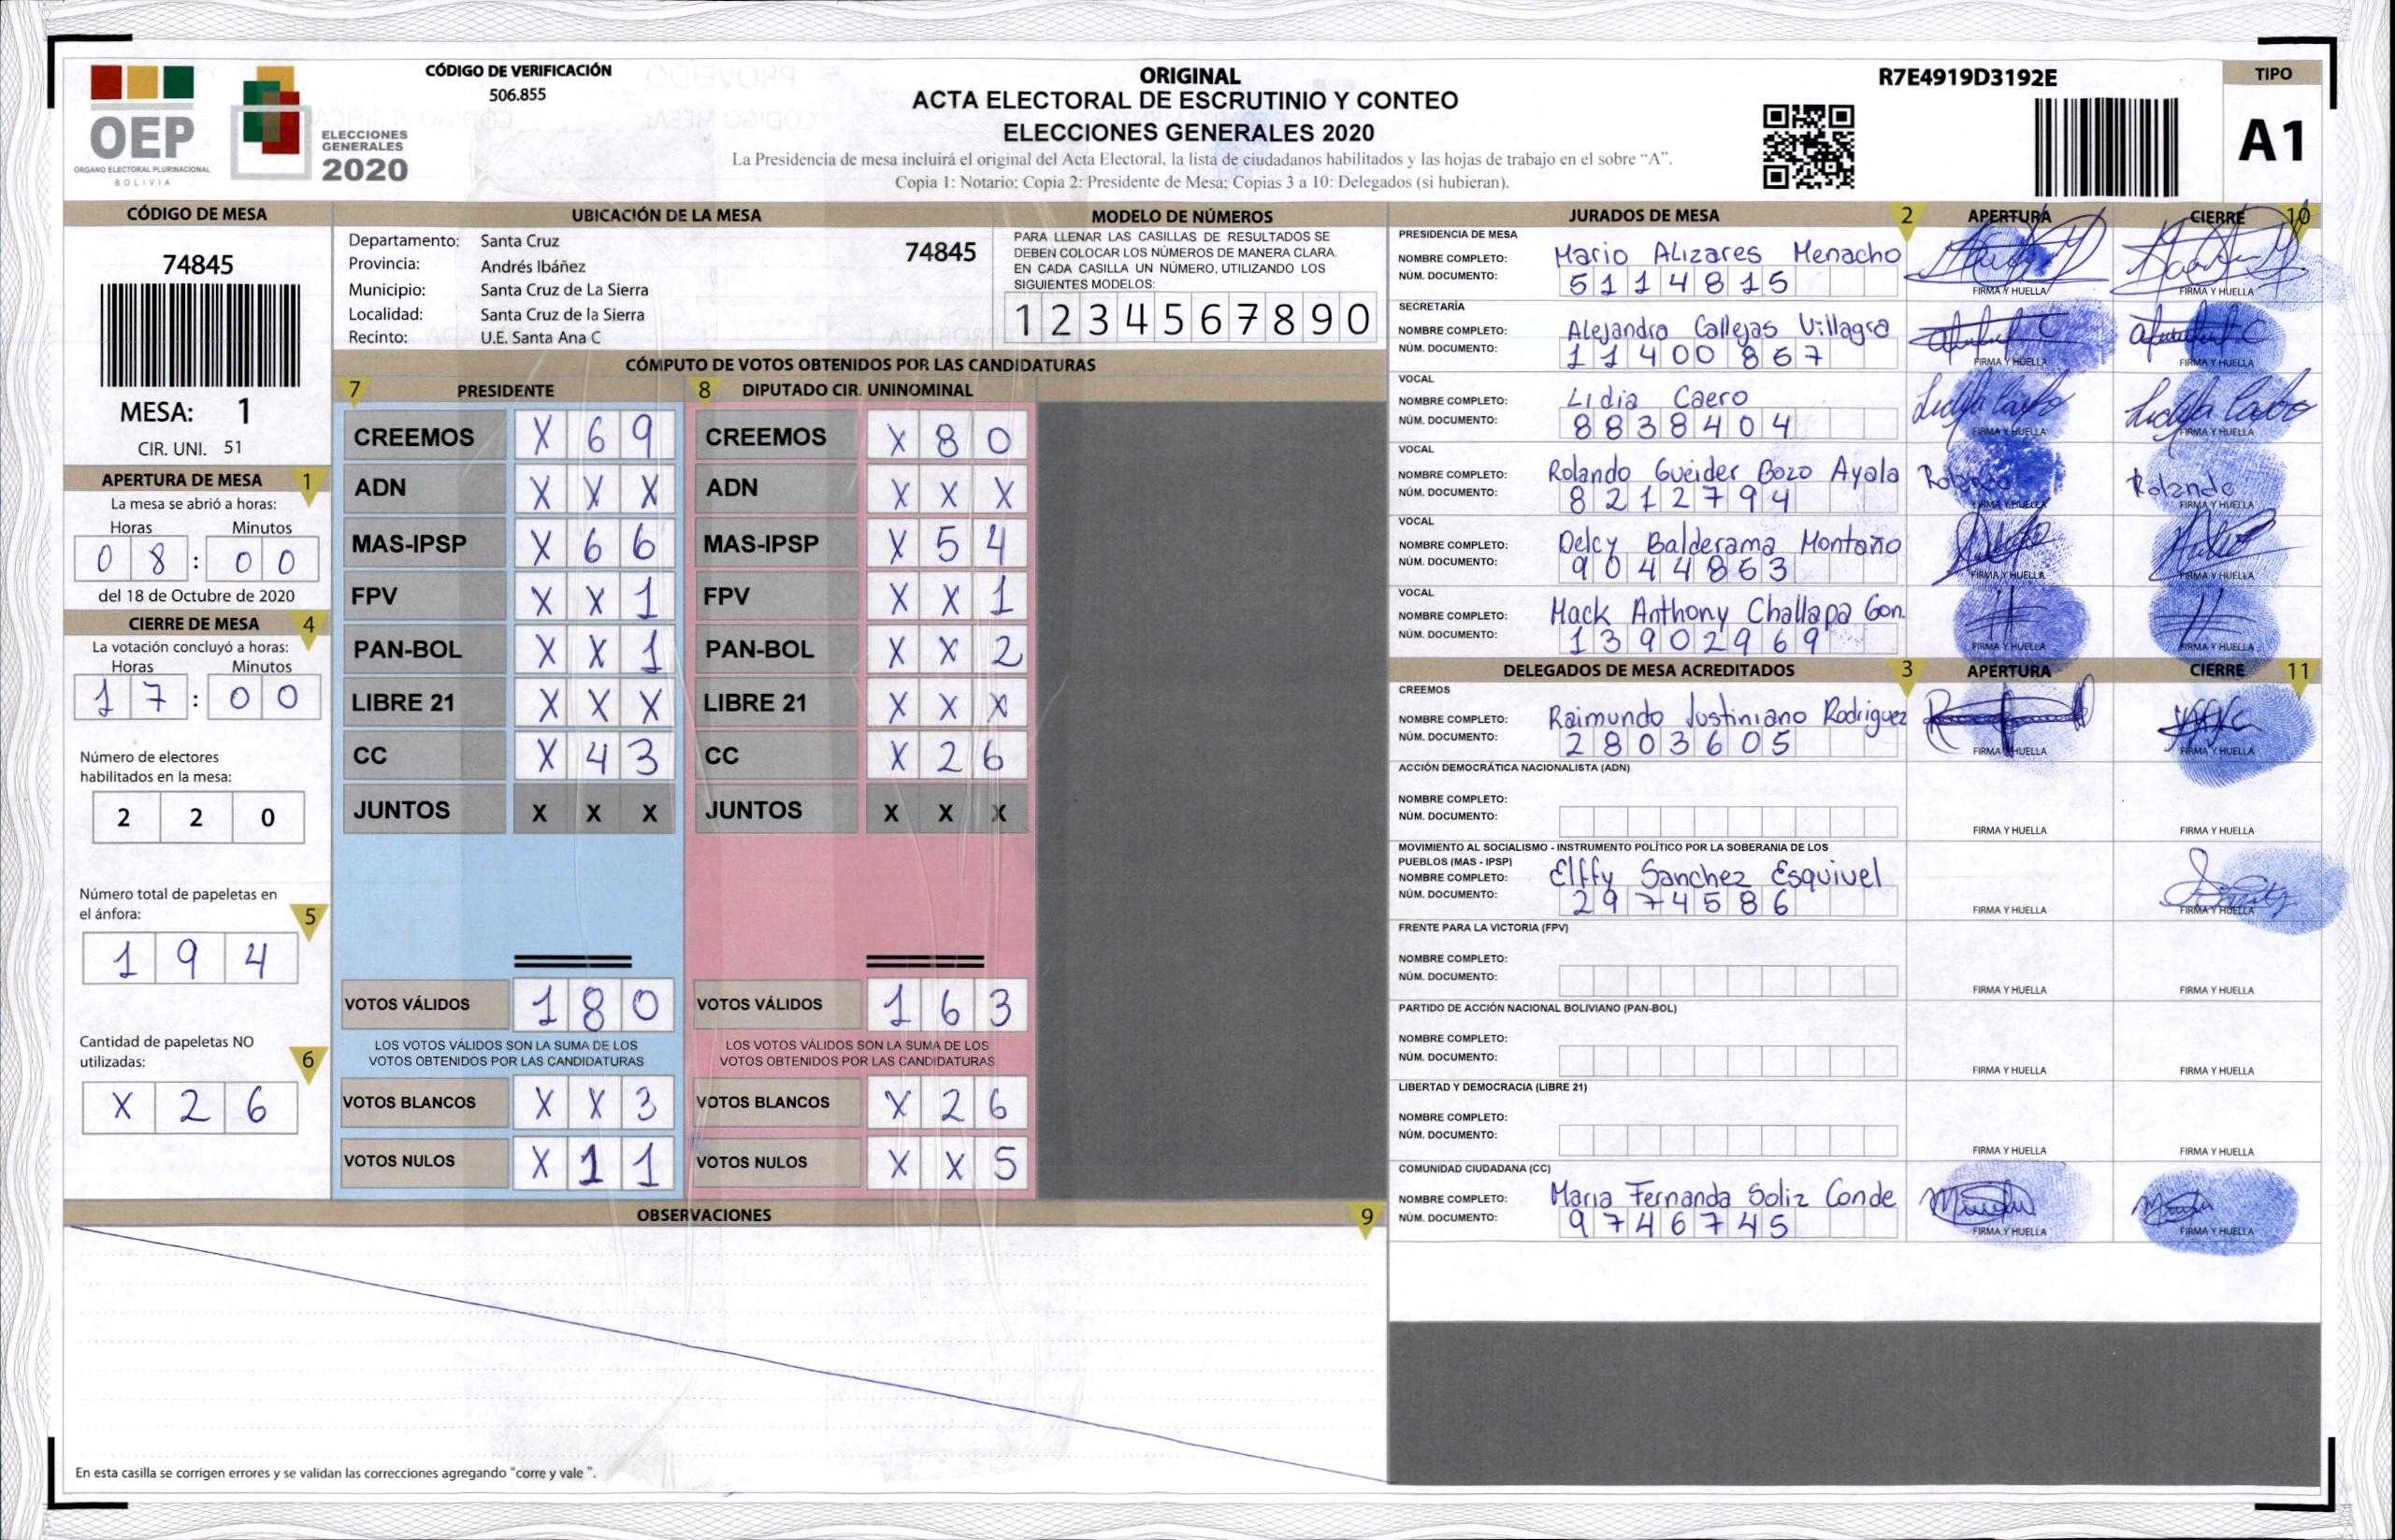 OEP
ÓRGANO ELECTORAL PLURINACIONAL
BOLIVIA
ELECCIONES
GENERALES
2020
CÓDIGO DE VERIFICACIÓN
506.855
ORIGINAL
ACTA ELECTORAL DE ESCRUTINIO Y CONTEO
ELECCIONES GENERALES 2020
La Presidencia de mesa incluirá el original del Acta Electoral, la lista de ciudadanos habilitados y las hojas de trabajo en el sobre "A".
Copia 1: Notario; Copia 2: Presidente de Mesa; Copias 3 a 10: Delegados (si hubieran).
R7E4919D3192E
TIPO
A1
CÓDIGO DE MESA
74845
MESA: 1
CIR. UNI. 51
APERTURA DE MESA 1
La mesa se abrió a horas:
Horas Minutos
0 8 : 0 0
del 18 de Octubre de 2020
CIERRE DE MESA 4
La votación concluyó a horas:
Horas Minutos
1 7 : 0 0
Número de electores
habilitados en la mesa:
2 2 0
Número total de papeletas en
el ánfora: 5
1 9 4
Cantidad de papeletas NO
utilizadas: 6
X 2 6
UBICACIÓN DE LA MESA
Departamento: Santa Cruz
74845
Provincia: Andrés Ibáñez
Municipio: Santa Cruz de La Sierra
Localidad: Santa Cruz de la Sierra
Recinto: U.E. Santa Ana C
MODELO DE NÚMEROS
PARA LLENAR LAS CASILLAS DE RESULTADOS SE
DEBEN COLOCAR LOS NÚMEROS DE MANERA CLARA.
EN CADA CASILLA UN NÚMERO, UTILIZANDO LOS
SIGUIENTES MODELOS:
1 2 3 4 5 6 7 8 9 0
CÓMPUTO DE VOTOS OBTENIDOS POR LAS CANDIDATURAS
7 PRESIDENTE
CREEMOS X 6 9
ADN X X X
MAS-IPSP X 6 6
FPV X X 1
PAN-BOL X X 1
LIBRE 21 X X X
CC X 4 3
JUNTOS X X X
VOTOS VÁLIDOS 1 8 0
LOS VOTOS VÁLIDOS SON LA SUMA DE LOS
VOTOS OBTENIDOS POR LAS CANDIDATURAS
VOTOS BLANCOS X X 3
VOTOS NULOS X 1 1
8 DIPUTADO CIR. UNINOMINAL
CREEMOS X 8 0
ADN X X X
MAS-IPSP X 5 4
FPV X X 1
PAN-BOL X X 2
LIBRE 21 X X X
CC X 2 6
JUNTOS X X X
VOTOS VÁLIDOS 1 6 3
LOS VOTOS VÁLIDOS SON LA SUMA DE LOS
VOTOS OBTENIDOS POR LAS CANDIDATURAS
VOTOS BLANCOS X 2 6
VOTOS NULOS X X 5
OBSERVACIONES 9
En esta casilla se corrigen errores y se validan las correcciones agregando "corre y vale ".
JURADOS DE MESA 2 APERTURA CIERRE 10
PRESIDENCIA DE MESA
NOMBRE COMPLETO: Mario Alizares Menacho
NÚM. DOCUMENTO: 5 1 1 4 8 1 5
FIRMA Y HUELLA FIRMA Y HUELLA
SECRETARÍA
NOMBRE COMPLETO: Alejandra Callejas Villagra
NÚM. DOCUMENTO: 1 1 4 0 0 8 6 7
FIRMA Y HUELLA FIRMA Y HUELLA
VOCAL
NOMBRE COMPLETO: Lidia Caero
NÚM. DOCUMENTO: 8 8 3 8 4 0 4
FIRMA Y HUELLA FIRMA Y HUELLA
VOCAL
NOMBRE COMPLETO: Rolando Gueider Bozo Ayala
Rolando Rolando
NÚM. DOCUMENTO: 8 2 1 2 7 9 4
FIRMA Y HUELLA FIRMA Y HUELLA
VOCAL
NOMBRE COMPLETO: Delcy Balderama Montaño
NÚM. DOCUMENTO: 9 0 4 4 8 6 3
FIRMA Y HUELLA FIRMA Y HUELLA
VOCAL
NOMBRE COMPLETO: Mack Anthony Challapa Gon.
NÚM. DOCUMENTO: 1 3 9 0 2 9 6 9
FIRMA Y HUELLA FIRMA Y HUELLA
DELEGADOS DE MESA ACREDITADOS 3 APERTURA CIERRE 11
CREEMOS
NOMBRE COMPLETO: Raimundo Justiniano Rodriguez
NÚM. DOCUMENTO: 2 8 0 3 6 0 5
FIRMA Y HUELLA FIRMA Y HUELLA
ACCIÓN DEMOCRÁTICA NACIONALISTA (ADN)
NOMBRE COMPLETO:
NÚM. DOCUMENTO:
FIRMA Y HUELLA FIRMA Y HUELLA
MOVIMIENTO AL SOCIALISMO - INSTRUMENTO POLÍTICO POR LA SOBERANIA DE LOS
PUEBLOS (MAS - IPSP)
NOMBRE COMPLETO: Elffy Sanchez Esquivel
NÚM. DOCUMENTO: 2 9 7 4 5 8 6
FIRMA Y HUELLA FIRMA Y HUELLA
FRENTE PARA LA VICTORIA (FPV)
NOMBRE COMPLETO:
NÚM. DOCUMENTO:
FIRMA Y HUELLA FIRMA Y HUELLA
PARTIDO DE ACCIÓN NACIONAL BOLIVIANO (PAN-BOL)
NOMBRE COMPLETO:
NÚM. DOCUMENTO:
FIRMA Y HUELLA FIRMA Y HUELLA
LIBERTAD Y DEMOCRACIA (LIBRE 21)
NOMBRE COMPLETO:
NÚM. DOCUMENTO:
FIRMA Y HUELLA FIRMA Y HUELLA
COMUNIDAD CIUDADANA (CC)
NOMBRE COMPLETO: Maria Fernanda Soliz Conde
NÚM. DOCUMENTO: 9 7 4 6 7 4 5
FIRMA Y HUELLA FIRMA Y HUELLA